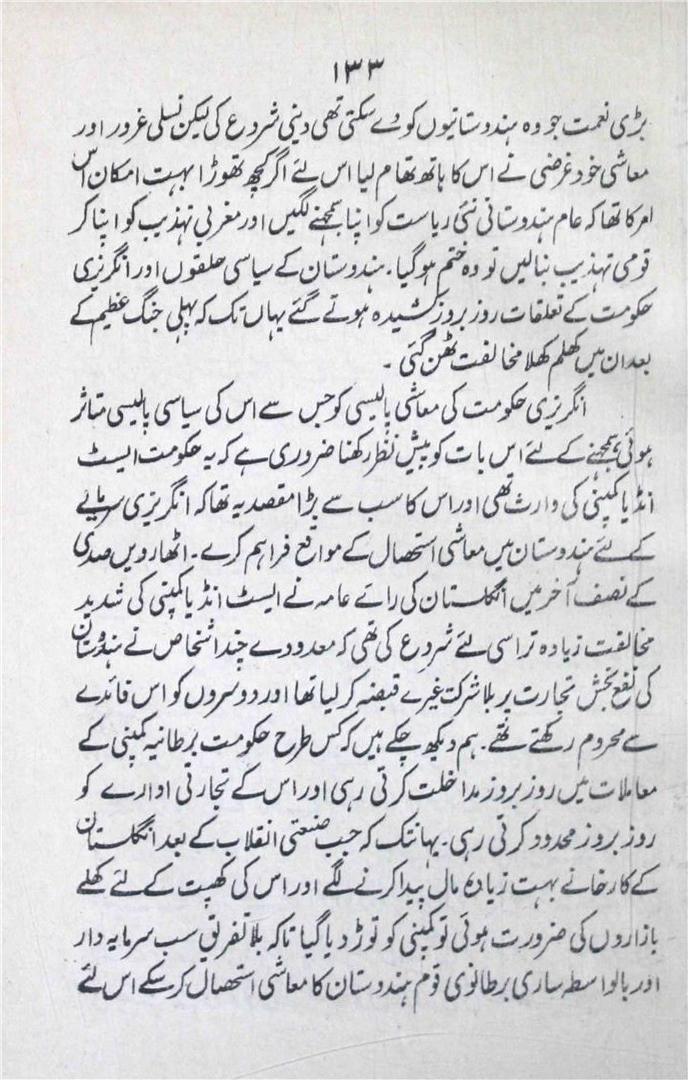 ۱۳۳
بڑی نعمت جو وہ ہندوستانیوں کو دے سکتی تھی دینی شروع کی لیکن نسلی غرور اور
معاشی خود غرضی نے اس کا ہاتھ تھام لیا اس لئے اگر کچھ تھوڑا بہت امکان اس
امر کا تھا کہ عام ہندوستانی نئی ریاست کو اپنا سمجھنے لگیں اور مغربی تہذیب کو اپنا کر
قومی تہذیب بنالیں تو وہ ختم ہوگیا۔ ہندوستان کے سیاسی حلقوں اور انگریزی
حکومت کے تعلقات روز بروز کشیدہ ہوتے گئے یہاں تک کہ پہلی جنگ عظیم کے
بعد ان میں کھلم کھلا مخالفت ٹھن گئی ۔
انگریزی حکومت کی معاشی پالیسی کو جس سے اس کی سیاسی پالیسی متاثر
ہوئی، سمجھنے کے لئے اس بات کو پیش نظر رکھنا ضروری ہے کہ یہ حکومت ایسٹ
انڈیا کمپنی کی وارث تھی اور اس کا سب سے بڑا مقصد یہ تھا کہ انگریزی سرمایے
کے لئے ہندوستان میں معاشی استحصال کے مواقع فراہم کرے۔ اٹھارویں صدی
کے نصف آخر میں انگلستان کی رائے عامہ نے ایسٹ انڈیا کمپنی کی شدید
مخالفت زیادہ تر اسی لئے شروع کی تھی کہ معدودے چند اشخاص نے ہندوستان
کی نفع بخش تجارت پر بلا شرکت غیرے قبضہ کر لیا تھا اور دوسروں کو اس فائدے
سے محروم رکھتے تھے۔ ہم دیکھ چکے ہیں کہ کس طرح حکومت برطانیہ کمپنی کے
معاملات میں روز بروز مداخلت کرتی رہی اور اس کے تجارتی ادارے کو
روز بروز محدود کرتی رہی۔ یہانتک کہ جب صنعتی انقلاب کے بعد انگلستان
کے کارخانے بہت زیادہ مال پیدا کرنے لگے اور اس کی کھپت کے لئے کھلے
بازاروں کی ضرورت ہوئی تو کمپنی کو توڑ دیا گیا تاکہ بلا تفریق سب سرمایہ دار
اور بالواسطہ ساری برطانوی قوم ہندوستان کا معاشی استحصال کر سکے اس لئے